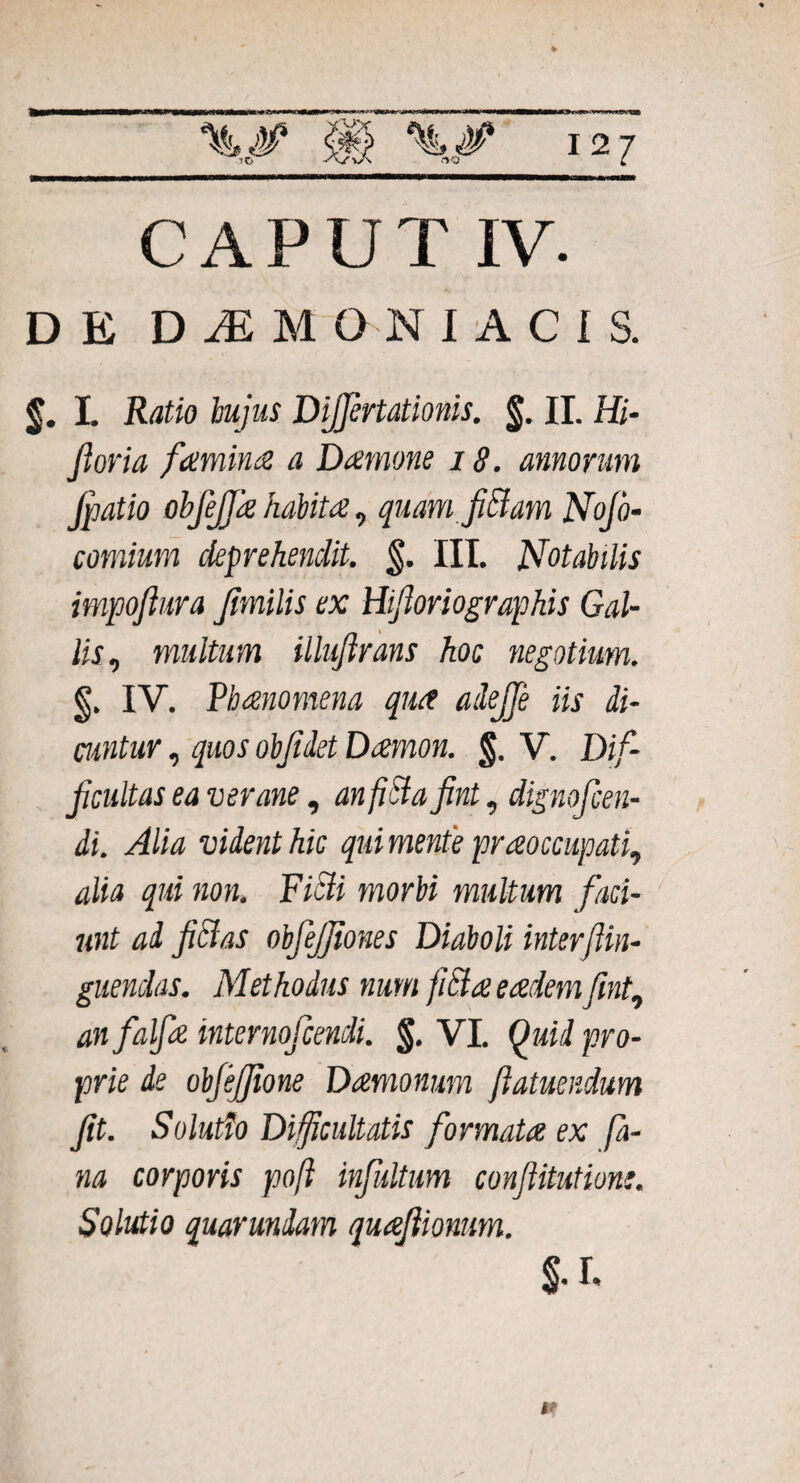 127
CAPUT IV.
DE DÆMONIACIS.
§. I. Ratio hujus Diſſertationis. §. II. Hi-
ſtoria fæminæ a Dæmone 18. annorum
ſpatio obſeſſæ habitæ, quam fictam Noſo-
comium deprehendit. §. III. Notabilis
impoſtura ſimilis ex Hiſtoriographis Gal-
lis, multum illuſtrans hoc negotium.
§. IV. Phænomena quæ adeſſe iis di-
cuntur, quos obſidet Dæmon. §. V. Dif-
ficultas ea verane, an ficta ſint, dignoſcen-
di. Alia vident hic qui mente præoccupati,
alia qui non. Ficti morbi multum faci-
unt ad fictas obſeſſiones Diaboli interſtin-
guendas. Methodus num fictæ eædem ſint,
an falſæ internoſcendi. §. VI. Quid pro-
prie de obſeſſione Dæmonum ſtatuendum
ſit. Solutio Difficultatis formatæ ex ſa-
na corporis poſt inſultum conſtitutione.
Solutio quarundam quæſtionum.
§. I.